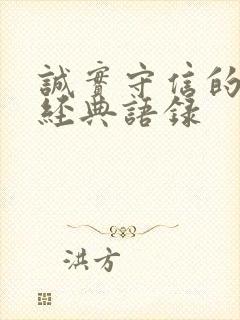 誠實守信的
經典語錄
洪方